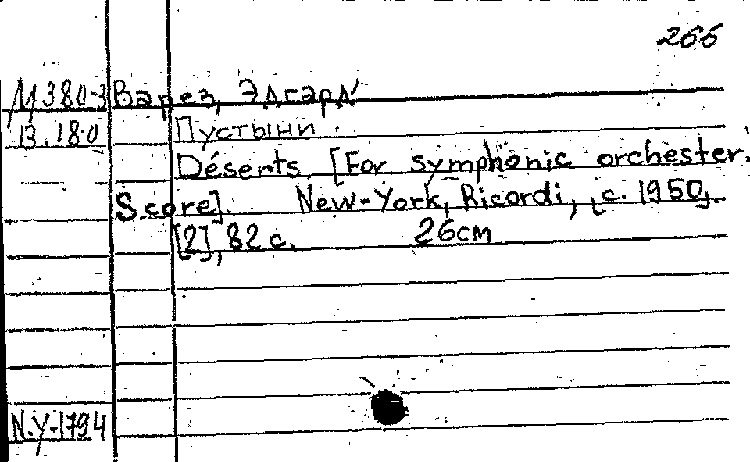 266
М380-3 Варез, Эдгард
В.180 Пустыни
Désents. [For symphonic orchester.
Score]. New-York, Ricordi, [c. 1950].
[2], 82 с. 26см
N.Y-1794